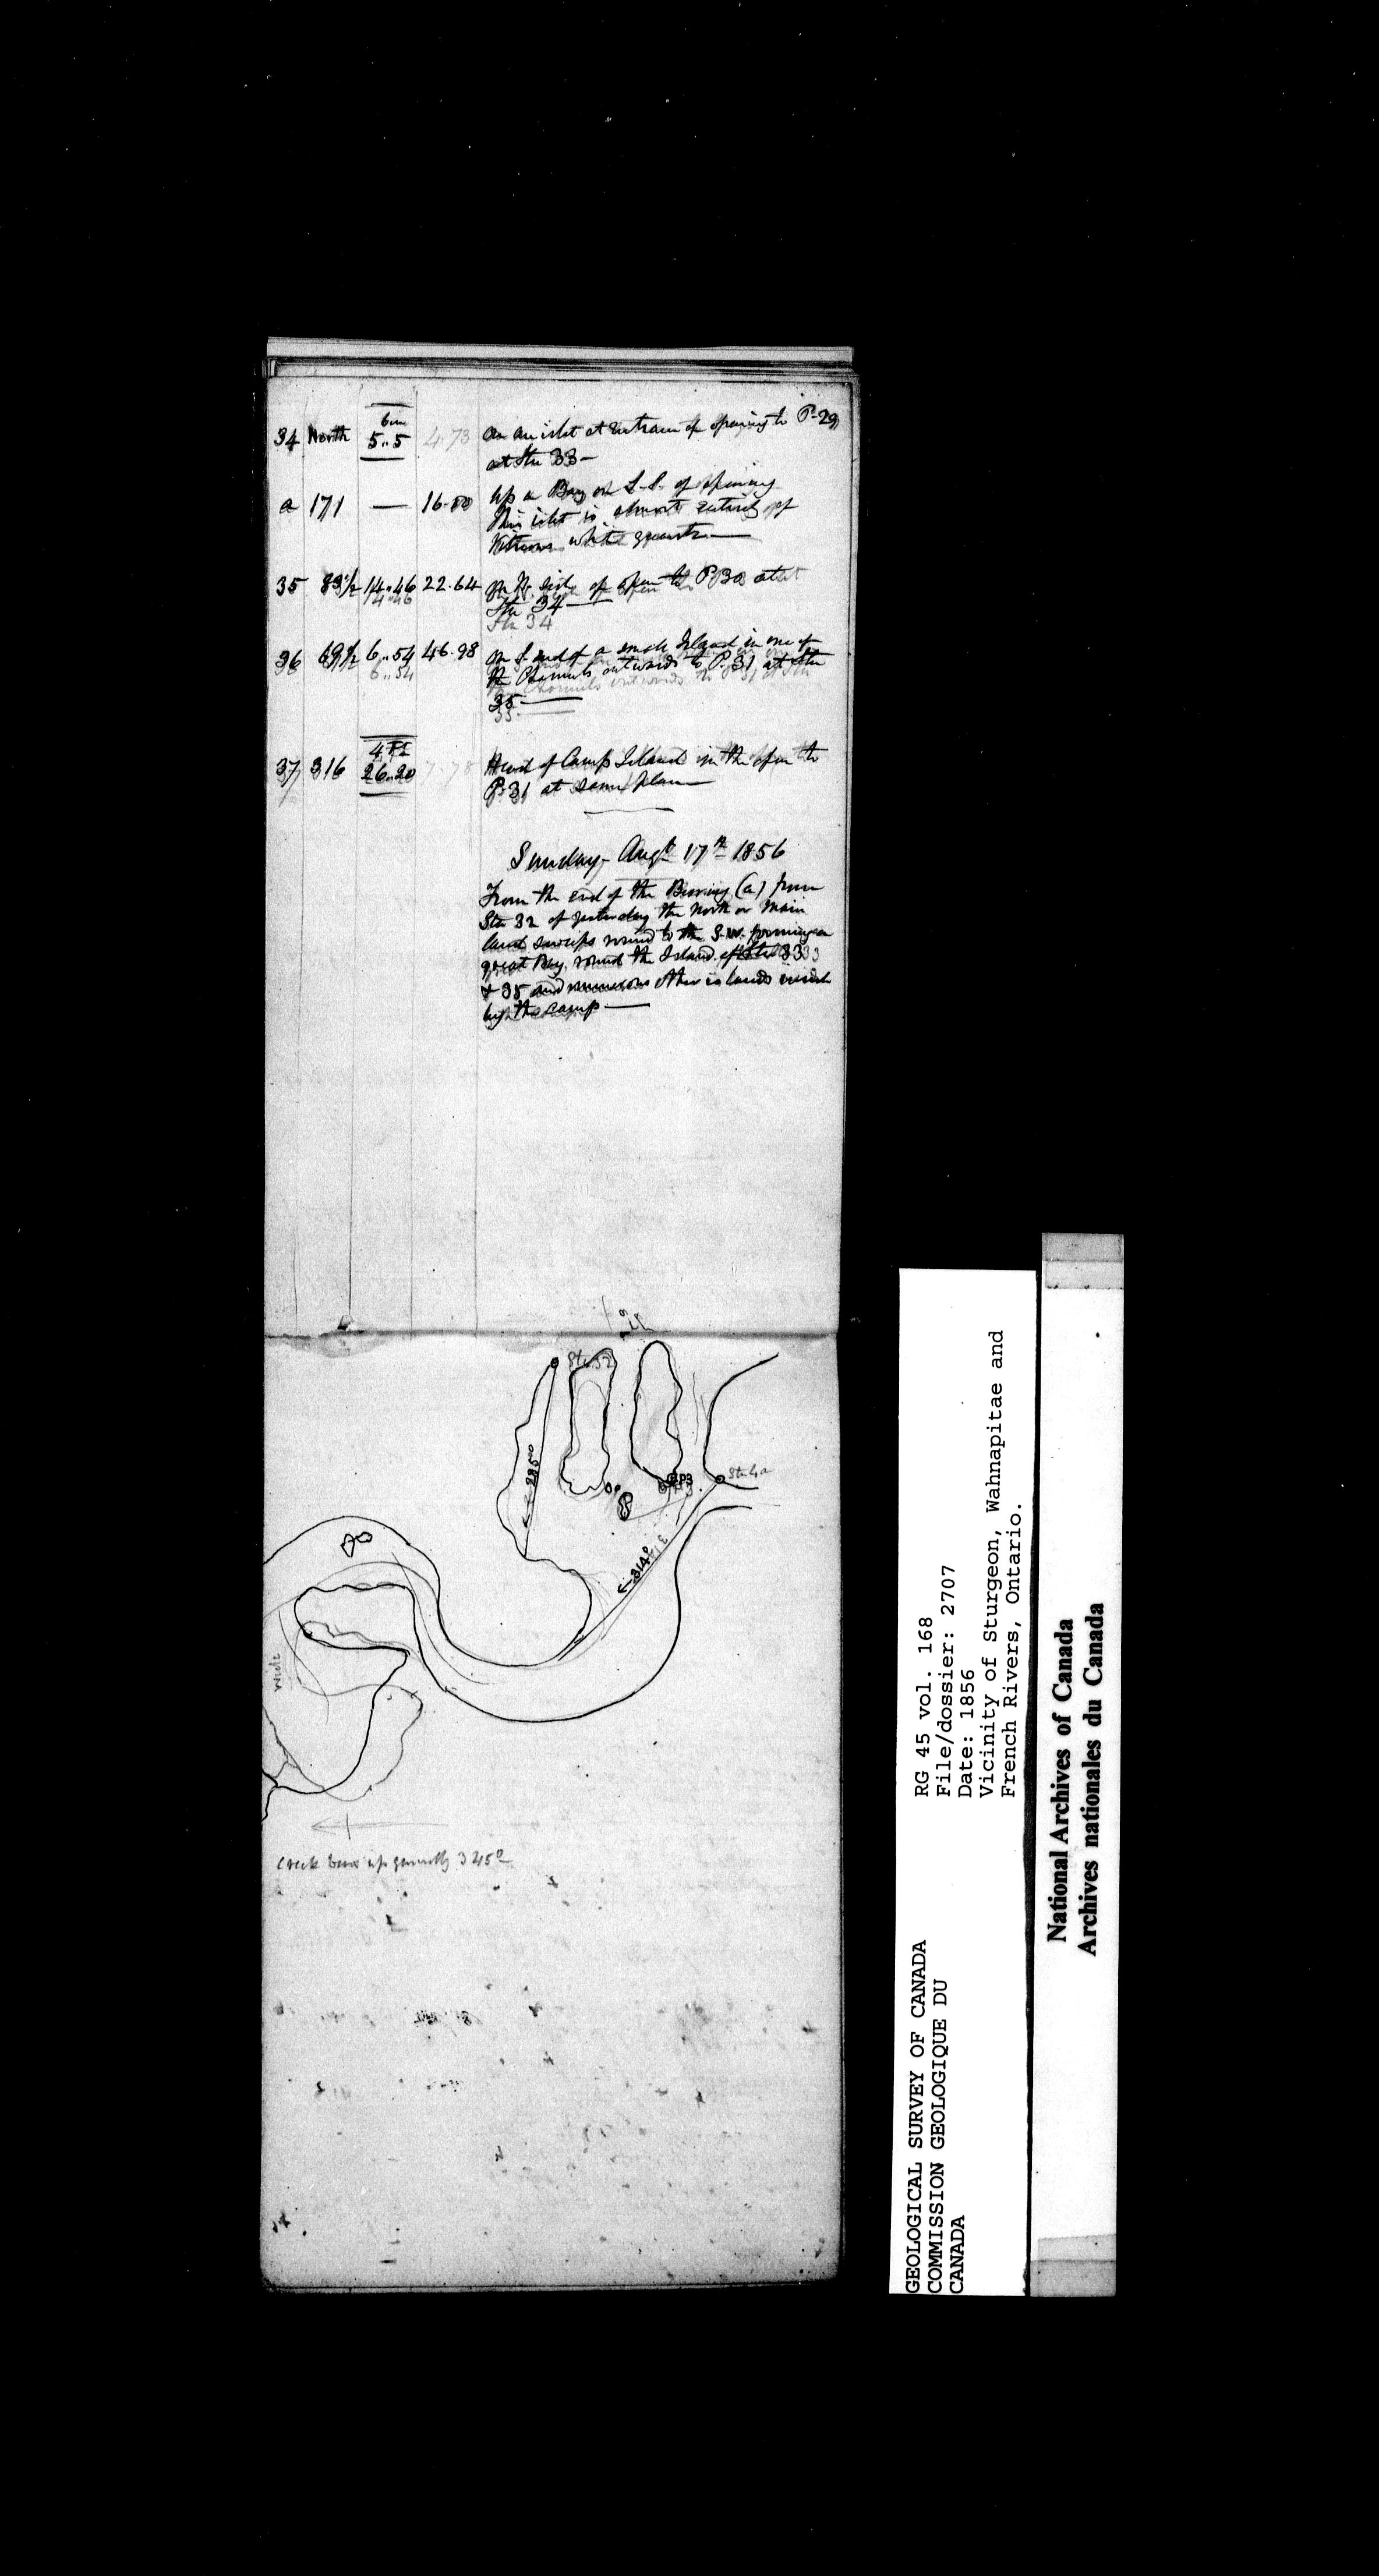 34 North 6m 5..5 4.73 On an islet at Entrance of opening to P-29
at Stn 33 —
a 171 — 16.80 Up a Bay on S.S. of opening
This islet is almost entirely of
Vitreous white quartz —
35 83½ 14..46 22.64 On N. side of open to P30 at
Stn 34 —
Stn 34
36 69½ 6..54 46.98 On S. end of a small Island in one of
the Channels outwards to P.31 at Stn
35 —
37 316 26..20 7.78 Head of Camp Island in the open to
P.31 at same place
Sunday - Augt 17th 1856
From the end of the Bearing (a) from
Stn 32 of yesterday the North or Main
land sweeps round to the S.W. forming a
great Bay round the Island of Stns 33
& 35 and numerous other islands inside
by the camp —
Stn 32
285°
P3
Stn 4a
314°
Wide
Creek bears up generally 345°
RG 45 vol. 168
File/dossier: 2707
Date: 1856
Vicinity of Sturgeon, Wahnapitae and
French Rivers, Ontario.
GEOLOGICAL SURVEY OF CANADA
COMMISSION GEOLOGIQUE DU
CANADA
National Archives of Canada
Archives nationales du Canada